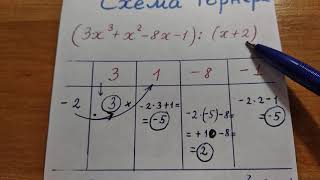 Схема Горнера
(3x³+x²-8x-1):(x+2)
3 1 -8 -1
-2 3 -2·3+1= =-5 -2·(-5)-8= =+10-8= =2 -2·2-1 =-5